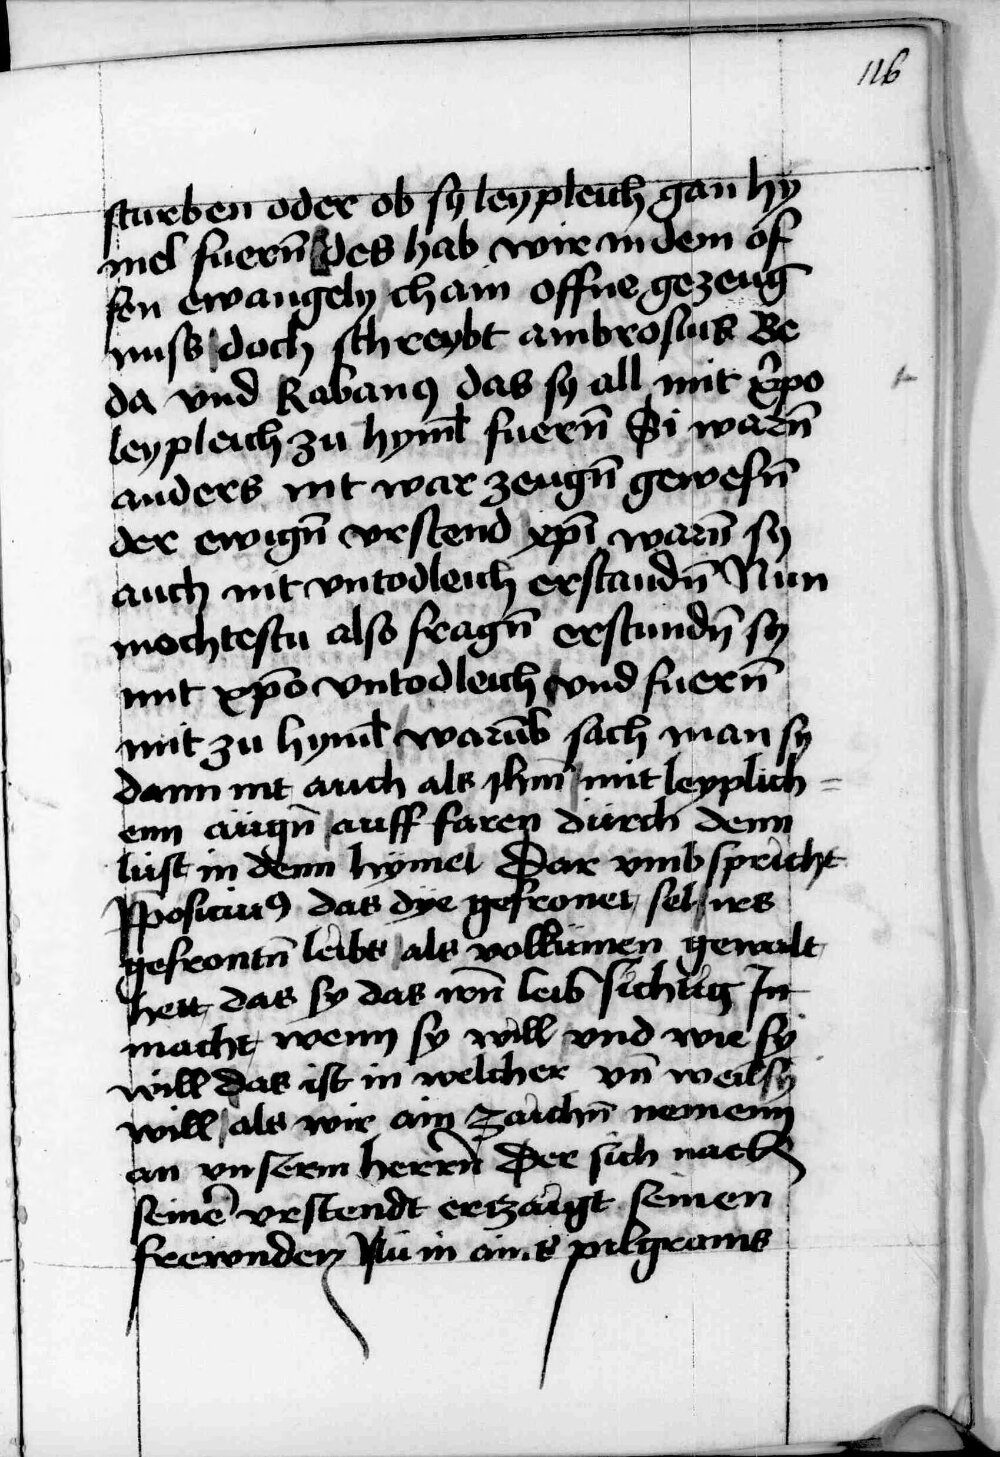 116
sturben oder ob sy leypleich gan hy
mel fuern̄ des hab wir in dem of
fen ewangely chain offne gezeug
nuss doch schreybt ambrosius Be
da vnd Rabanꝯ das sy all mit xp̄o
leypleich zu hyml̄ fuern̄ Si warn̄
anders nit war zeugn̄ gewesn̄
der ewign̄ vrstend xp̄i warn̄ sy
auch nit vntodleich erstandn̄ Nun
mochtestu also fragn̄ erstundn̄ sy
mit xp̄o vntodleich vnd fuern̄
mit zu hyml̄ warūb sach man sy
dann nit auch als Jhm̄ mit leyplich =
enn augn̄ auff faren durch denn
lust in denn hymel Dar vmb spricht
das dye gefronet sel irs
gefrontn̄ leibs als volkumen gewalt
hett das sy das leib sichtig In
macht wenn sy will vnd wie sy
will das ist in welcher vn̄ weil sy
will als wir ain zaichn̄ nemenn
an vnserm herrn̄ Der sich nach
seinē vrstendt ertzaigt seinen
frewnden Nu in ains pilgrams